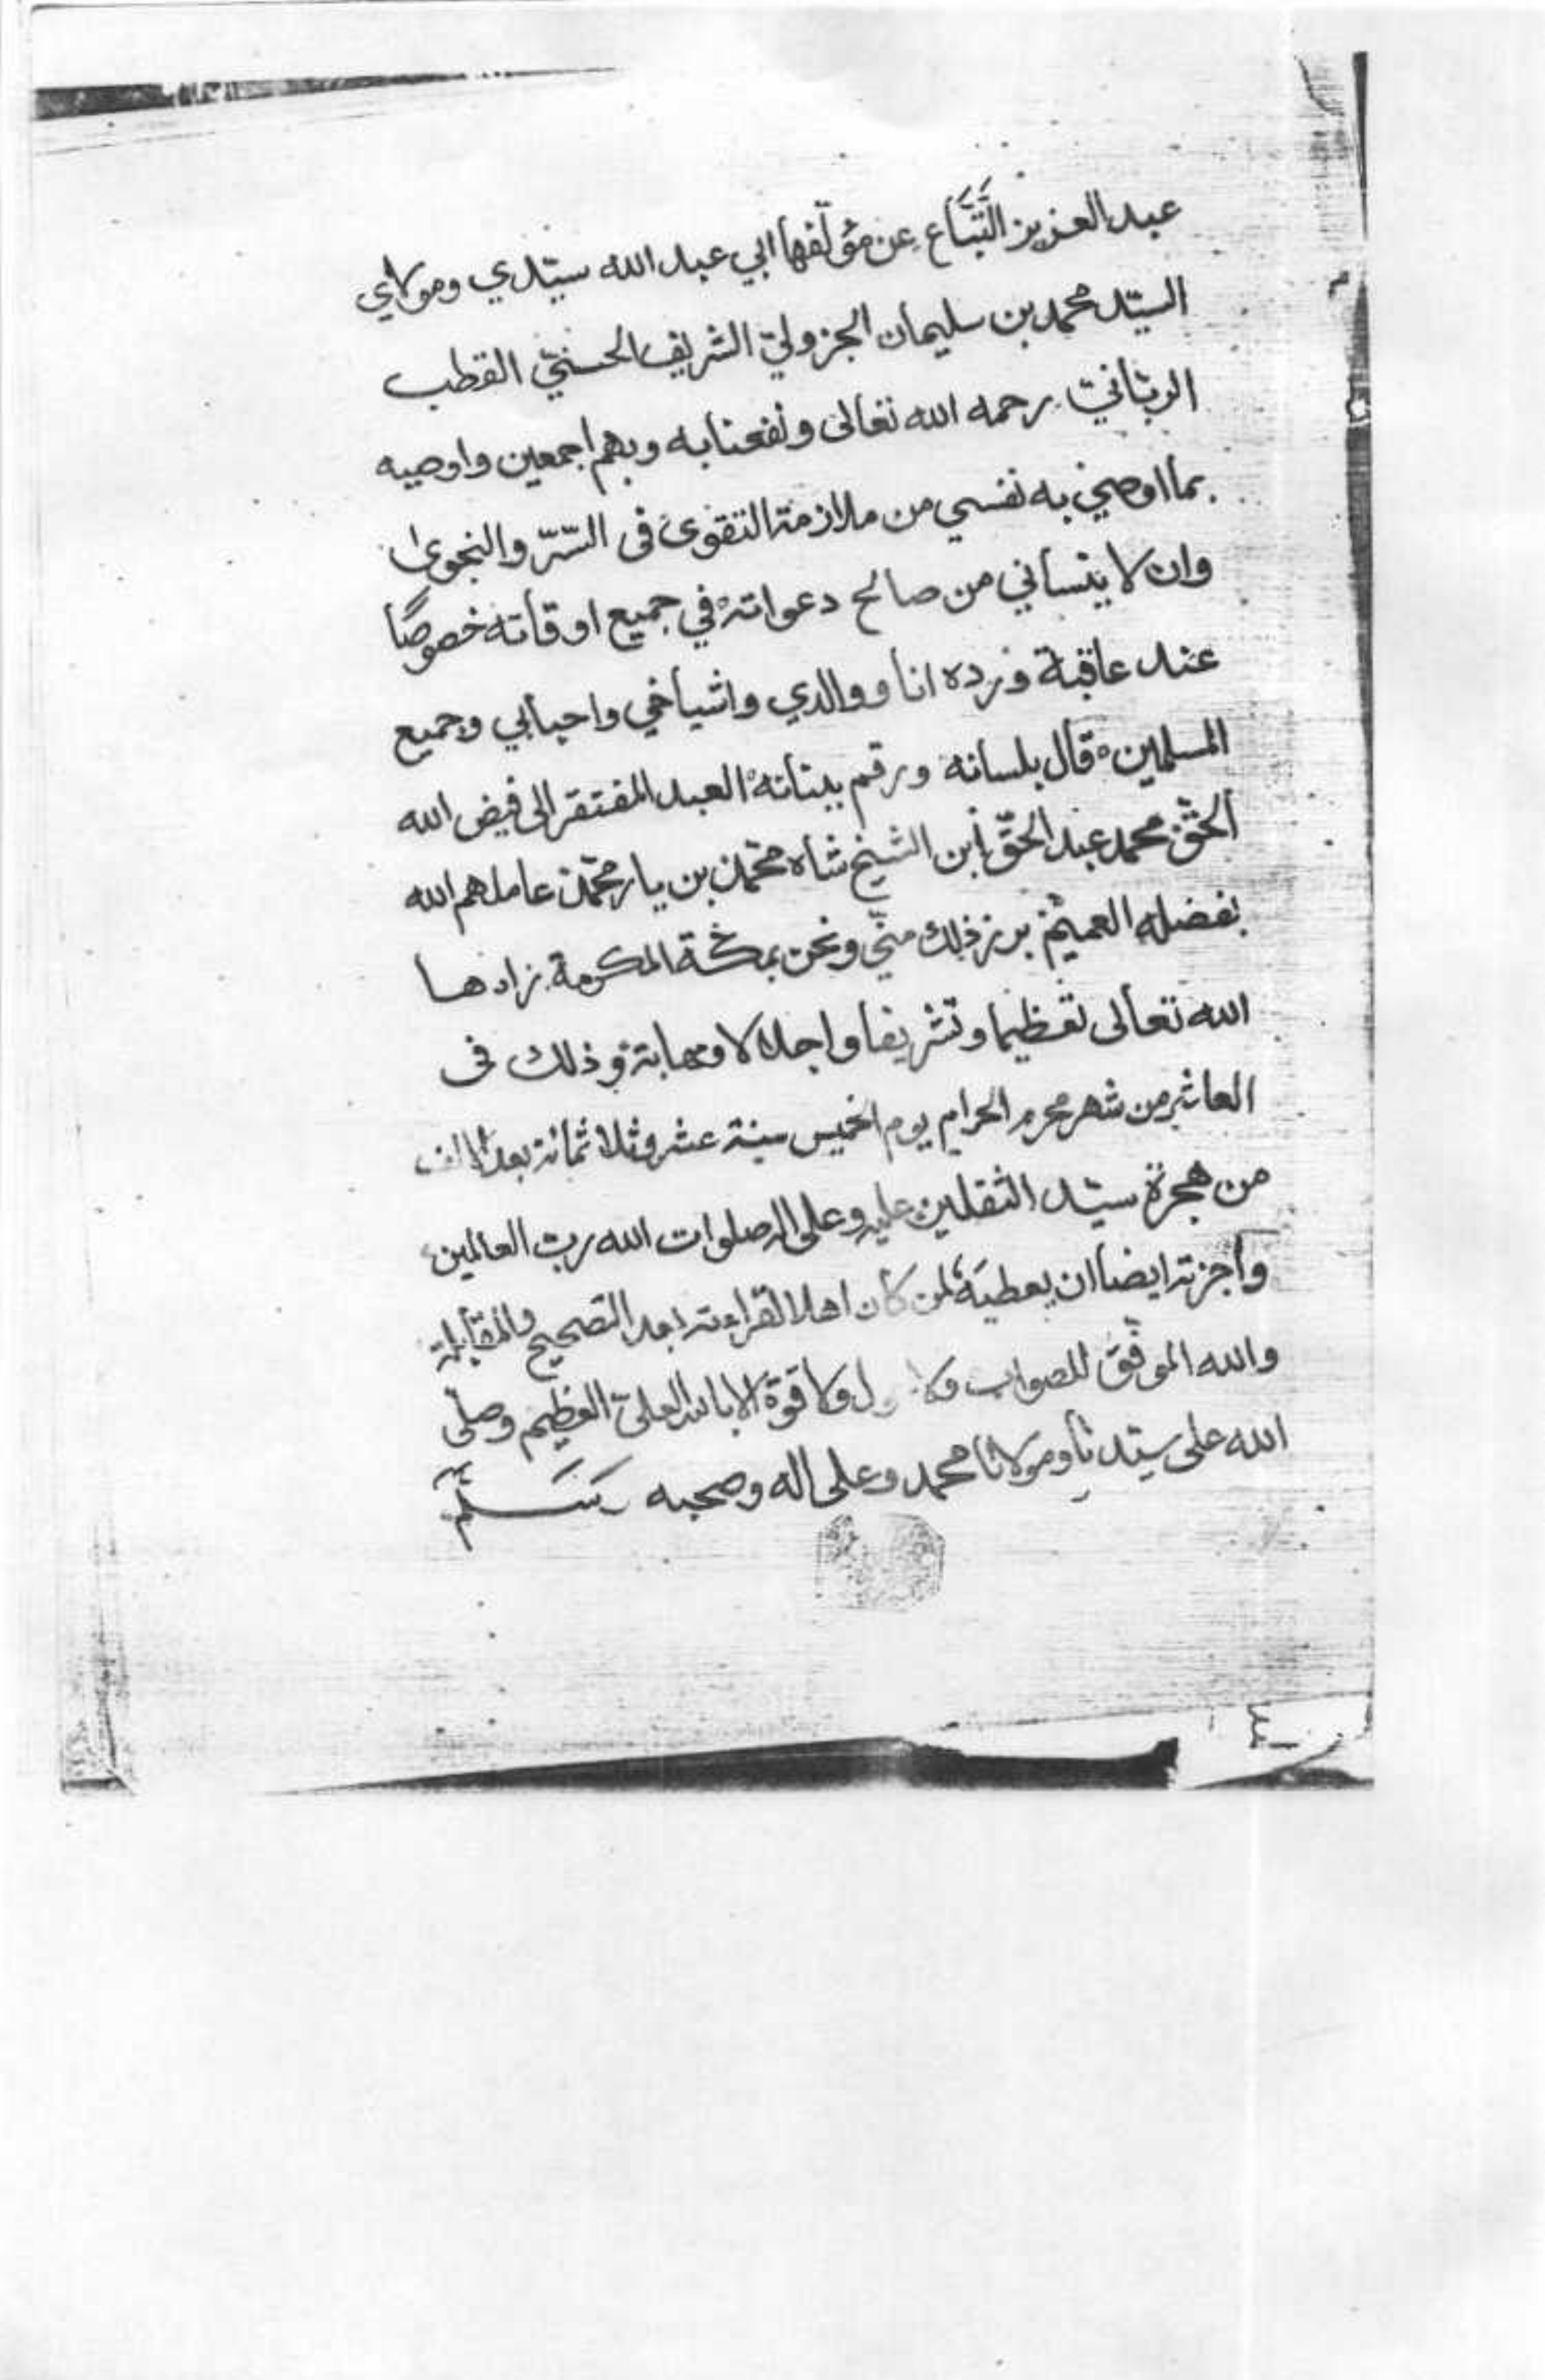 عبد العزيز التَّبَّاع عن مؤلفها ابي عبد الله سيّدي ومولاي
السيّد محمد بن سليمان الجزوليّ الشريف الحسنيّ القطب
الربّانيّ رحمه الله تعالى ونفعنا به وبهم اجمعين واوصيه
بما اوصي به نفسي من ملازمة التقوى فى السّرّ والنجوى
وان لا ينساني من صالح دعواته في جميع اوقاته خصوصًا
عند عاقبة ورده انا ووالدي واشياخي واحبابي وجميع
المسلمين قال بلسانه ورقم ببنانه العبد المفتقر الى فيض الله
الحق محمد عبد الحقّ ابن الشيخ شاه محمّد بن يار محمّد عاملهم الله
بفضله العميم برز ذلك منّي ونحن بمكّة المكرمة زادها
الله تعالى تعظيما وتشريفا واجلالا ومهابة وذلك فى
العاشر من شهر محرم الحرام يوم الخميس سنة عشر وثلاثمائة بعد الالف
من هجرة سيّد الثقلين عليه وعلى اله صلوات الله رب العالمين
واجزته ايضا ان يعطيَه لمن كان اهلا لقراءته بعد التصحيح والمقابلة
والله الموفّق للصواب ولا ول ولا قوّة الا بالله العليّ العظيم وصلى
الله على سيّدنا ومولانا محمد وعلى اله وصحبه وَسَلَّم